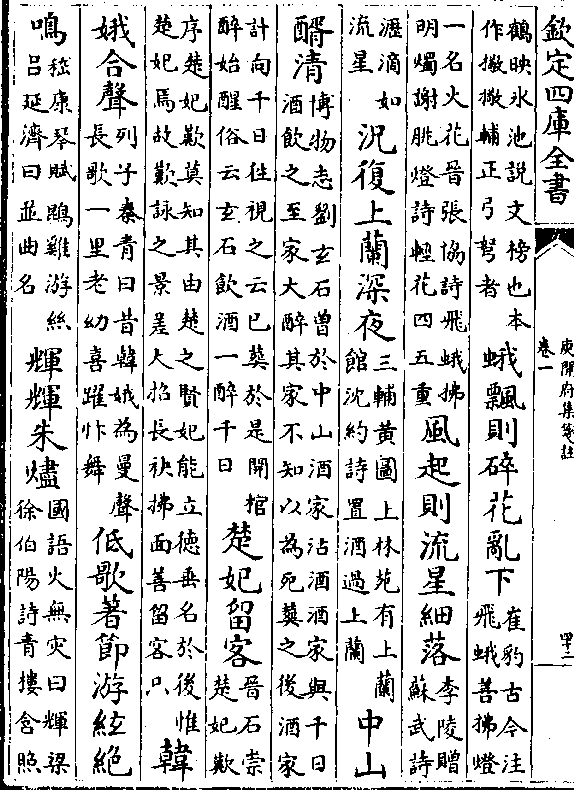 欽定四庫全書
庾開府集箋註
卷一
四十二
鶴映水池說文榜也本
作撽撽輔正弓弩者
蛾飄則碎花亂下
崔豹古今注
飛蛾善拂燈
一名火花晉張協詩飛蛾拂
明燭謝朓燈詩輕花四五重
風起則流星細落
李陵贈
蘇武詩
瀝滴如
流星
況復上蘭深夜
三輔黃圖上林苑有上蘭
館沈約詩置酒過上蘭
中山
醑清
博物志劉玄石曽於中山酒家沽酒酒家與千日
酒飲之至家大醉其家不知以為死葬之後酒家
計向千日往視之云已葬於是開棺
醉始醒俗云玄石飲酒一醉千日
楚妃留客
晉石崇
楚妃歎
序楚妃歎莫知其由楚之賢妃能立德垂名於後惟
楚妃焉故歎詠之景差大招長袂拂面善留客只
韓
娥合聲
列子秦青曰昔韓娥為曼聲
長歌一里老幼喜躍忭舞
低歌著節游絃絶
鳴
嵇康琴賦鵾雞游絲
呂延濟曰並曲名
輝輝朱燼
國語火無灾曰輝梁
徐伯陽詩青樓含照